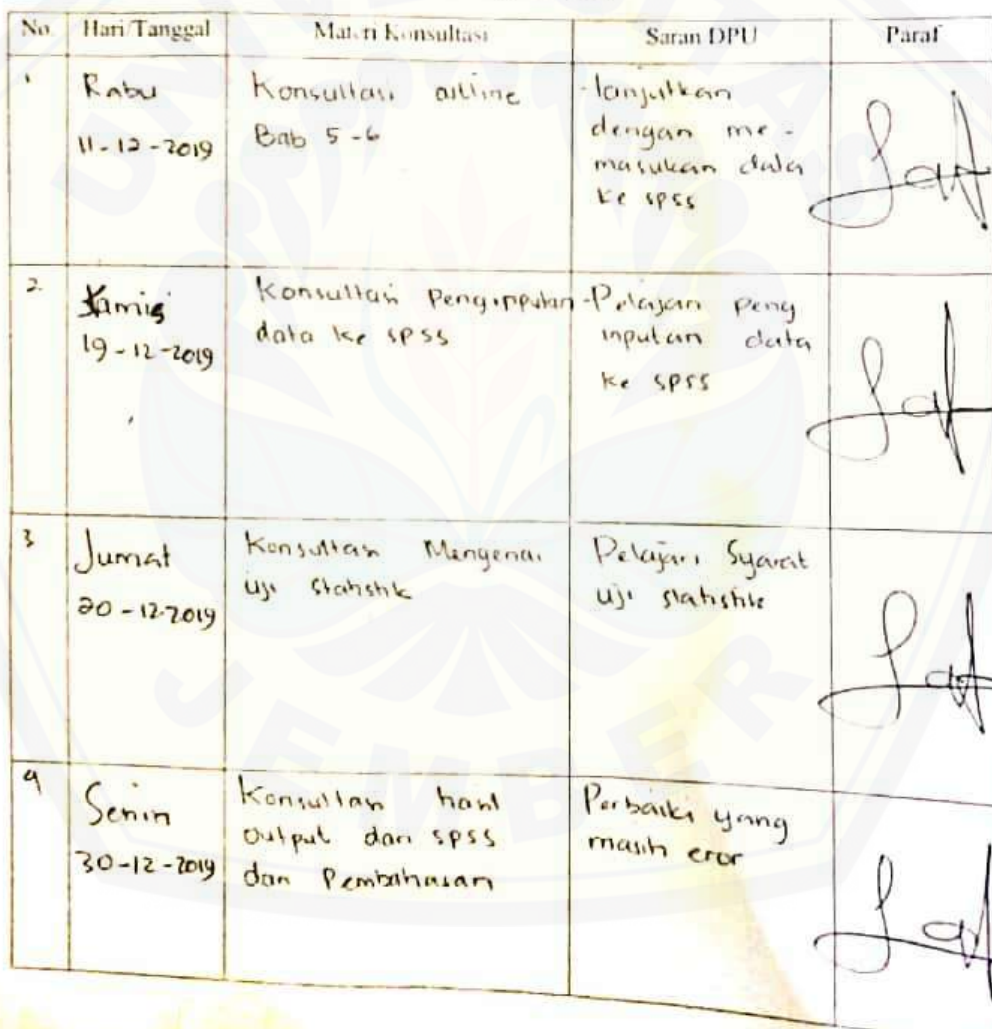 No. Hari/Tanggal Materi Konsultasi Saran DPU Paraf
1 Rabu 11-12-2019
Konsultasi outline
Bab 5-6
- lanjutkan
dengan me-
masukan data
ke spss
2. Kamis
19-12-2019
Konsultasi Penginputan
data ke spss
- Pelajari peng
inputan data
ke spss
3 Jumat
20-12-2019
Konsultasi Mengenai
uji statistik
Pelajari Syarat
uji statistik
4 Senin
30-12-2019
Konsultasi hasil
output dari spss
dan Pembahasan
Perbaiki yang
masih eror
UNIVERSITAS
JEMBER